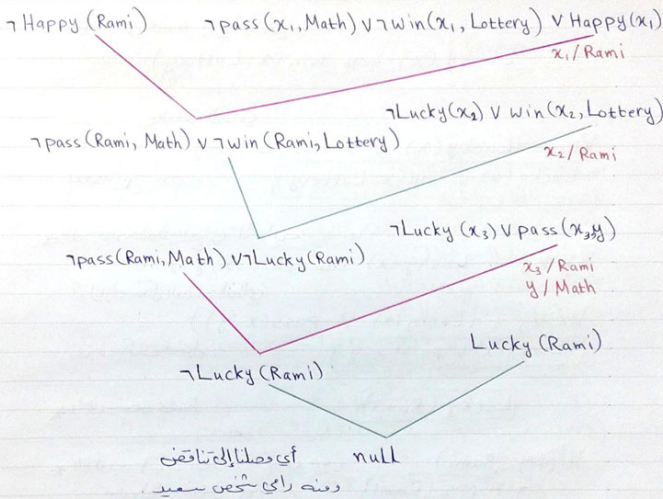 ¬Happy (Rami)
¬pass (x₁, Math) ∨ ¬win (x₁, Lottery) ∨ Happy (x₁)
x₁/Rami
¬Lucky (x₂) ∨ win (x₂, Lottery)
¬pass (Rami, Math) ∨ ¬win (Rami, Lottery)
x₂/Rami
¬Lucky (x₃) ∨ pass (x₃, y)
¬pass (Rami, Math) ∨ ¬Lucky (Rami)
x₃/Rami
y/Math
Lucky (Rami)
¬Lucky (Rami)
null
أي وصلنا إلى تناقض
ومنه رامي شخص سعيد.